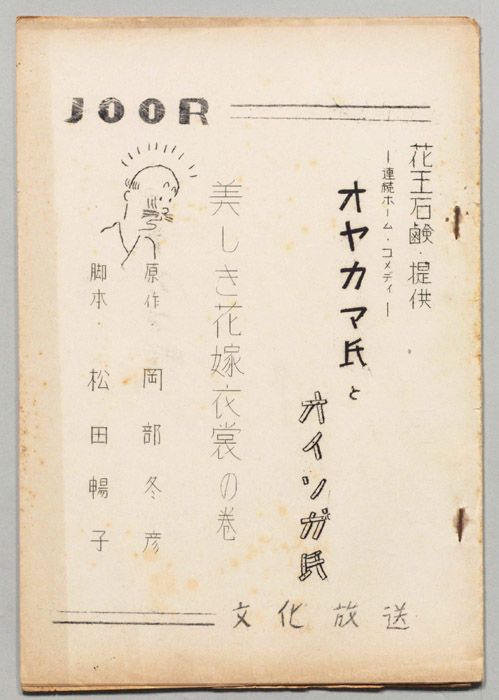 JOOR
花王石鹸・提供
―連続ホーム・コメディ―
オヤカマ氏と
オイソガ氏
美しき花嫁衣裳の巻
原作・岡部冬彦
脚本・松田暢子
文化放送